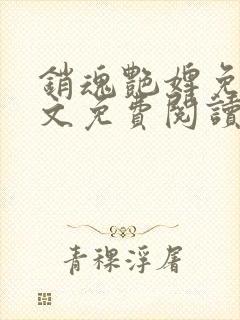 銷魂艷婢免
文免費閱讀
青稞浮屠